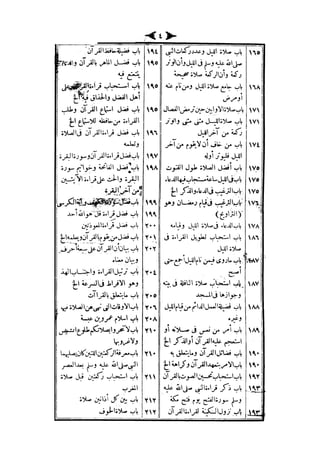 ٤
١٦٥ باب صلاة الليل وعدد ركعات النبي
صلى الله عليه وسلم في الليل وأن الوتر
ركعة وأن الركعة صلاة صحيحة
١٦٨ باب جامع صلاة الليل ومن نام عنه
أو مرض
١٧١ باب صلاة الاوابين حين ترمض الفصال
١٧١ باب صلاة الليل مثنى مثنى والوتر
ركعة من آخر الليل
١٧٤ باب من خاف أن لا يقوم من آخر
الليل فليوتر أوله
١٧٥ باب أفضل الصلاة طول القنوت
١٧٥ باب في الليل ساعة مستجاب فيها الدعاء
١٧٥ باب الترغيب في الدعاء والذكر الخ
باب الترغيب في قيام رمضان وهو
(التراويح)
١٧٨ باب الدعاء في صلاة الليل وقيامه
١٨٦ باب استحباب تطويل القراءة في
صلاة الليل
١٨٧ باب ماروى فيمن نام الليل أجمع حتى
أصبح
١٨٧ باب استحباب صلاة النافلة في بيته
وجوازها في المسجد
١٨٨ باب فضيلة العمل الدائم من قيام الليل
وغيره
١٨٩ باب أمر من نعس في صلاته أو
استعجم عليه القرآن أو الذكر الخ
١٩٠ باب فضائل القرآن وما يتعلق به
١٩٠ باب الامر بتعهد القرآن وكراهة الخ
١٩٢ باب استحباب تحسين الصوت بالقرآن
١٩٣ باب ذكر قراءة النبي صلى الله عليه
وسلم سورة الفتح يوم فتح مكة
١٩٣ باب نزول السكينة لقراءة القرآن
١٩٤ باب فضيلة حافظ القرآن
١٩٥ باب فضل الماهر بالقرآن والذي
يتتعتع فيه
١٩٥ باب استحباب قراءة القرآن على
أهل الفضل والحذاق فيه الخ
١٩٥ باب فضل استماع القرآن وطلب
القراءة من حافظه للاستماع الخ
١٩٦ باب فضل قراءة القرآن في الصلاة
وتعلمه
١٩٧ باب فضل قراءة القرآن وسورة البقرة
١٩٨ باب فضل الفاتحة وخواتيم سورة
البقرة والحث على قراءة الآيتين
من آخر البقرة
باب فضل سورة الكهف وآية الكرسي
باب فضل قراءة قل هو الله أحد
باب فضل قراءة المعوذتين
باب فضل من يقوم بالقرآن ويعلمه الخ
٢٠٢ باب بيان أن القرآن على سبعة أحرف
وبيان معناه
٢٠٤ باب ترتيل القراءة واجتناب الهذ
وهو الافراط في السرعة الخ
باب ما يتعلق بالقراآت
باب الاوقات التي نهى عن الصلاة فيها
باب اسلام عمرو بن عبسة
٢١٠ باب لا تتحروا بصلاتكم طلوع الشمس
ولا غروبها
٢١٠ باب معرفة الركعتين اللتين كان يصليهما
النبي صلى الله عليه وسلم بعد العصر
٢١١ باب استحباب ركعتين قبل صلاة
المغرب
٢١٢ باب بين كل أذانين صلاة
٢١٢ باب صلاة الخوف